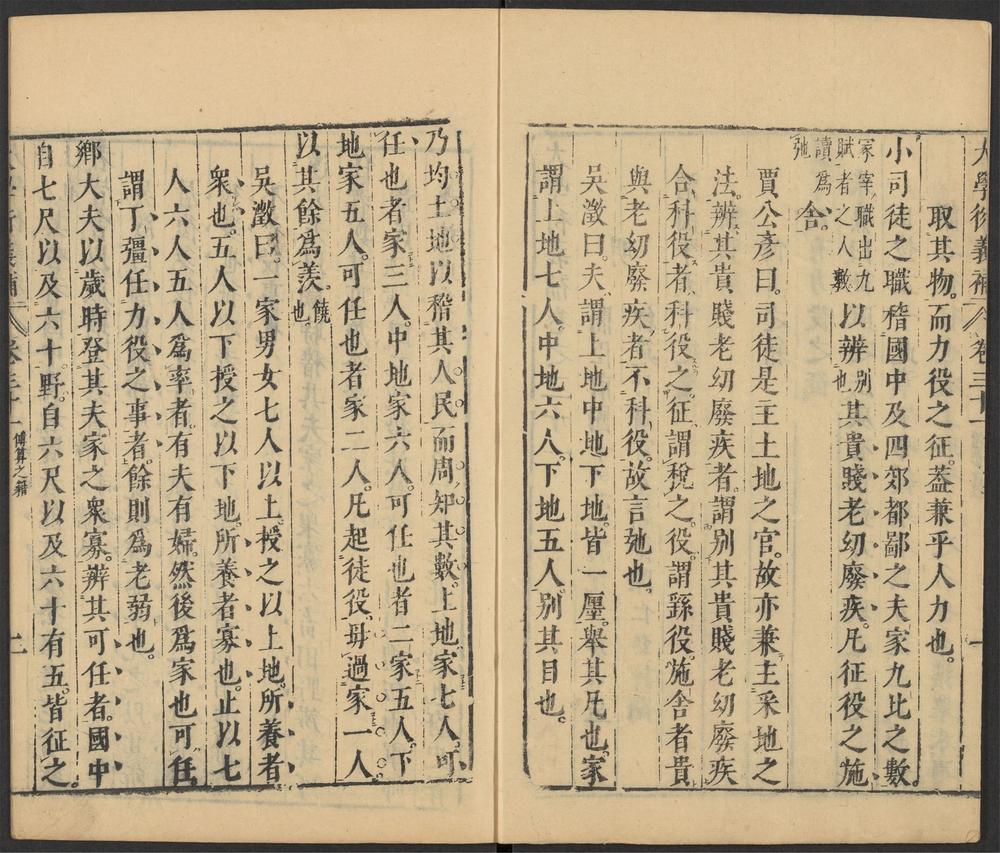 大學衍義補 卷三十一 一
取其物而力役之征蓋兼乎人力也。
小司徒之職稽國中及四郊都鄙之夫家九比之數。
冢宰職出九賦者之人數
讀為弛
以辨別也其貴賤老幼廢疾。凡征役之施
舍。
賈公彥曰。司徒是主土地之官。故亦兼主采地之
法。辨其貴賤老幼廢疾者。謂別其貴賤老幼廢疾
合科役者。科役之。征謂稅之。役謂繇役。施舍者貴
與老幼廢疾者不科役。故言弛也。
吳澂曰。夫謂上地中地下地。皆一廛。舉其凡也。家
謂上地七人。中地六人。下地五人。別其目也。
乃均土地以稽其人民而周知其數。上地家七人。可
任也者家三人。中地家六人。可任也者二家五人。下
地家五人。可任也者家二人。凡起徒役。毋過家一人。
以其餘為羨。饒也
吳澂曰。一家男女七人以上授之以上地。所養者
眾也。五人以下授之以下地。所養者寡也。止以七
人六人五人為率者。有夫有婦。然後為家也。可任
謂丁彊任力役之事者。餘則為老弱也。
鄉大夫以歲時登其夫家之眾寡。辨其可任者。國中
自七尺以及六十。野。自六尺以及六十有五。皆征之。
卷三十一 傅算之籍 二